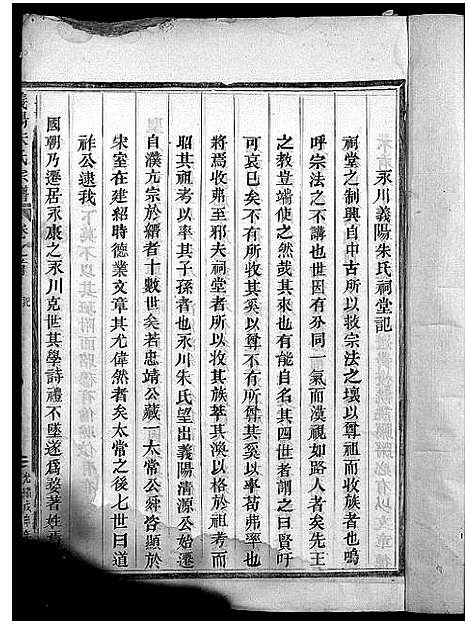 永川義陽朱氏祠堂記
祠堂之制興自中古所以救宗法之壞以尊祖而收族者也嗚
呼宗法之不講也世固有分同一氣而漠視如路人者矣先王
之教豈端使之然哉其來也有能自名其四世者謂之曰賢吁
可哀已矣不有所收其奚以尊不有所尊其奚以率苟弗率也
將焉收焉至邪夫祠堂者所以收其族萃其渙以格於祖考而
昭其祖考以率其子孫者也永川朱氏望出義陽清源公始遷
自濮亢宗於縉者十數世矣若忠靖公藏一太常公舜咨顯於
宋室在建紹時德業文章其尤偉然者矣太常之後七世曰道
祚公逮我
國朝乃遷居永康之永川克世其學詩禮不墜遂為婺著姓焉
義陽朱氏宗譜
卷之首
記